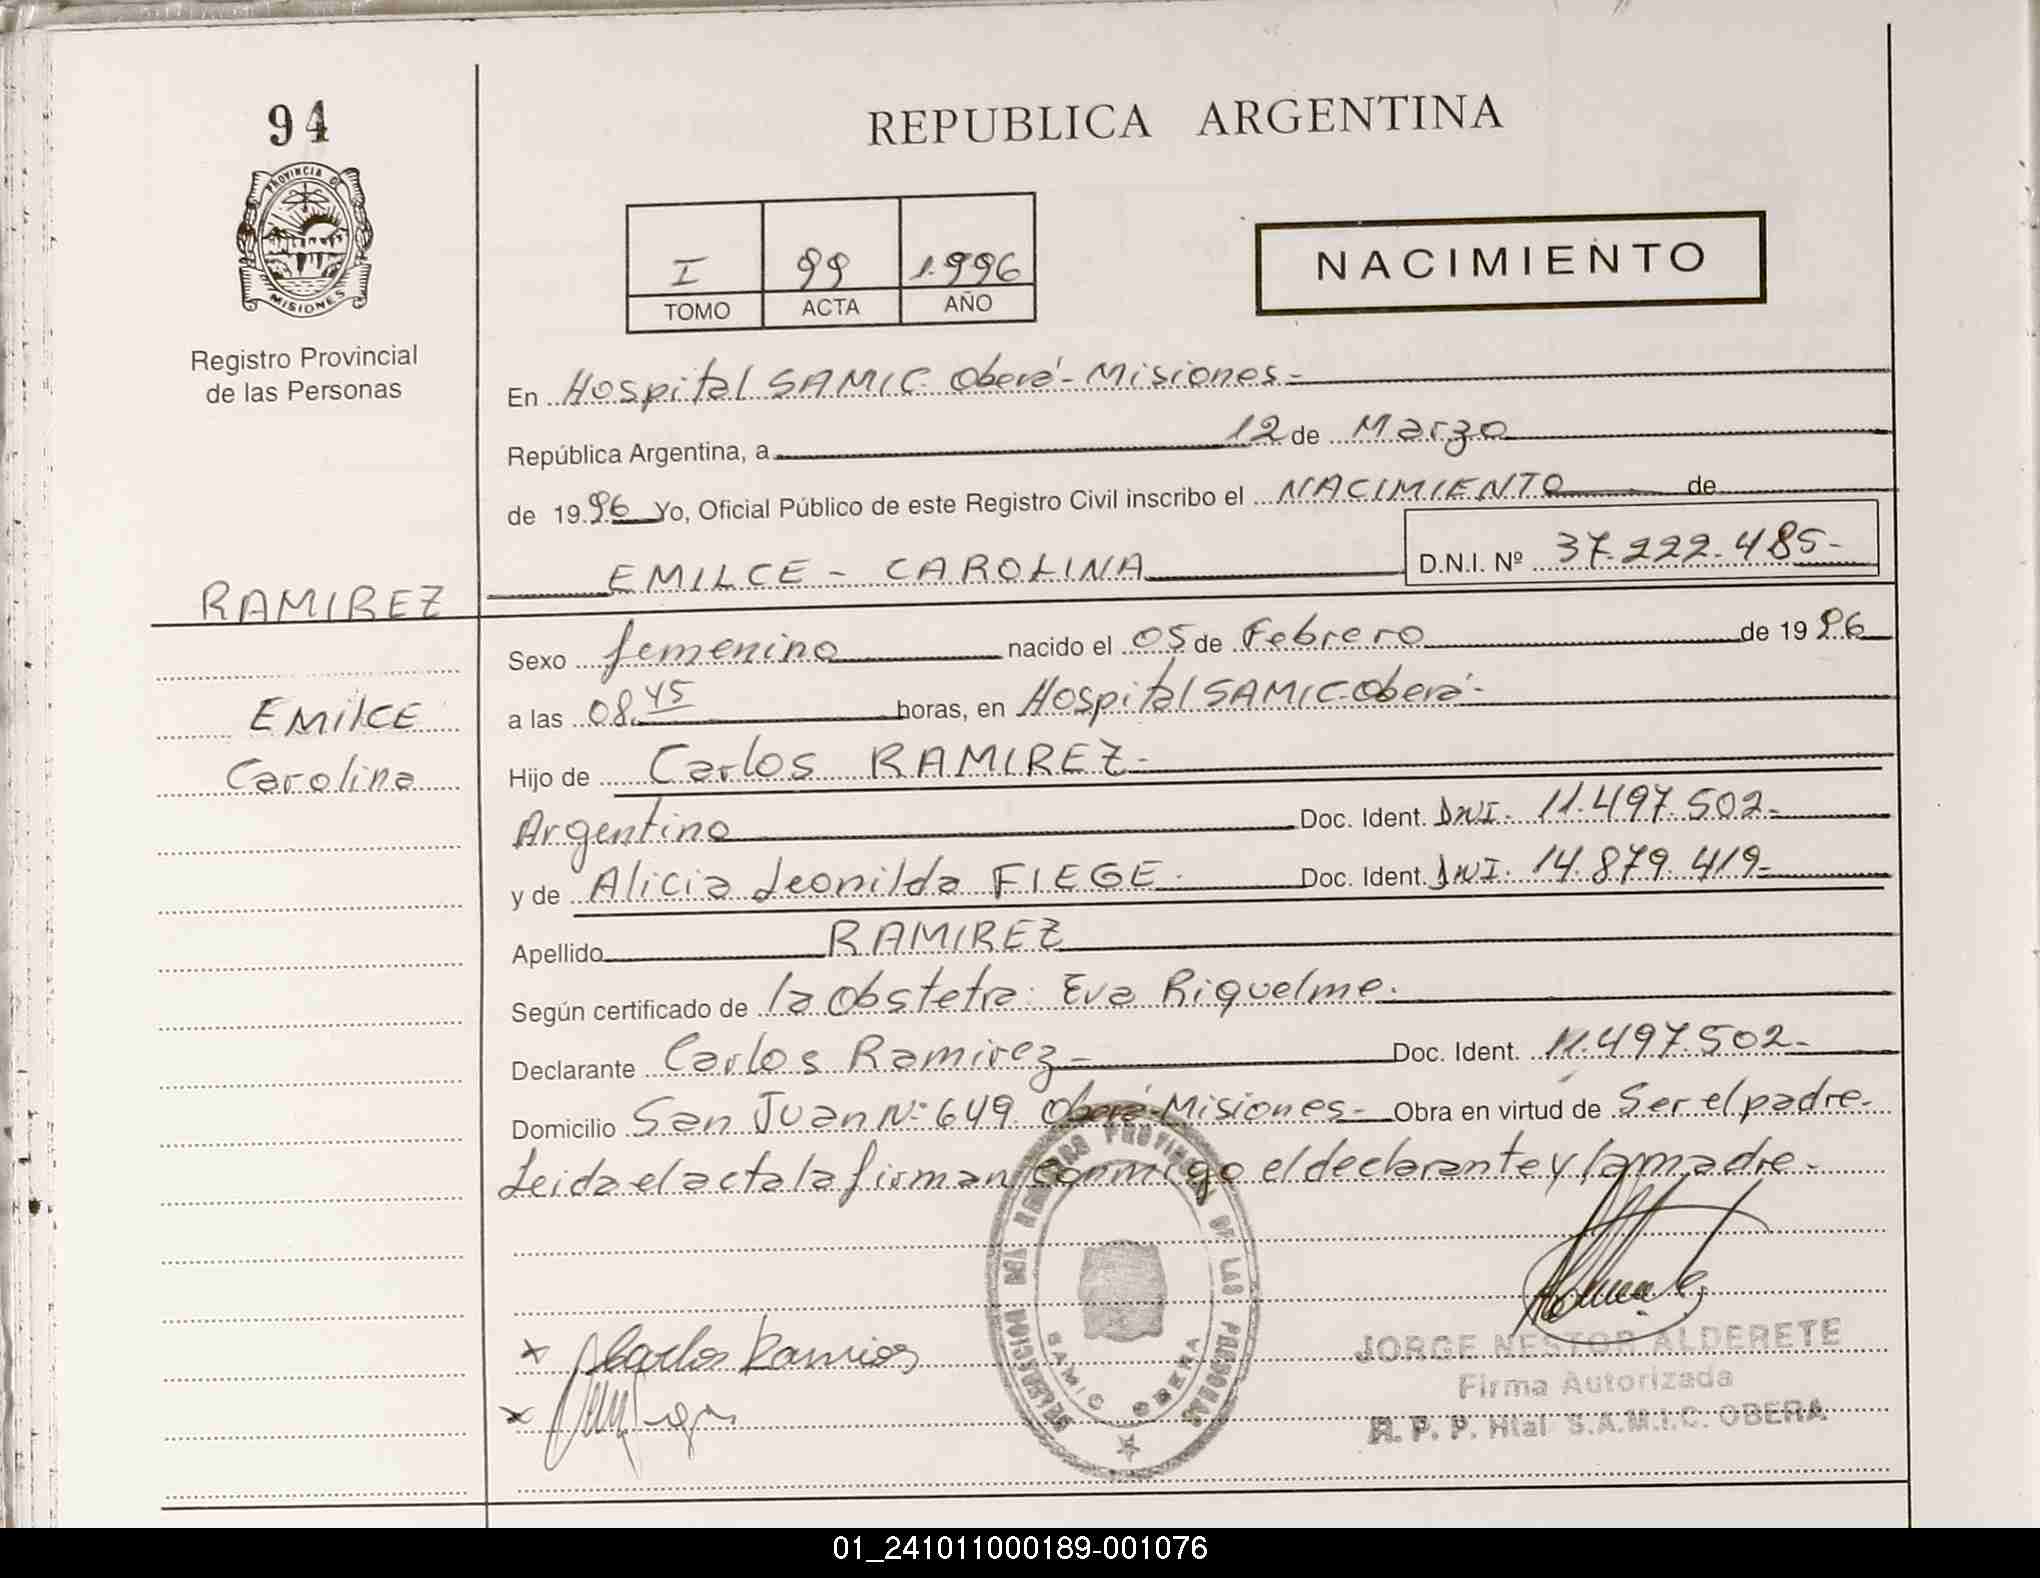 94
REPUBLICA ARGENTINA
PROVINCIA DE
MISIONES
Registro Provincial
de las Personas
I 99 1.996
TOMO ACTA AÑO
NACIMIENTO
En Hospital SAMIC. Oberá - Misiones -
República Argentina, a 12 de Marzo
de 1996 Yo, Oficial Público de este Registro Civil inscribo el NACIMIENTO de
EMILCE - CAROLINA D.N.I. Nº 37.222.485-
RAMIREZ
EMilCE
Carolina
Sexo femenino nacido el 05 de Febrero de 1996
a las 08.45 horas, en Hospital SAMIC-Oberá-
Hijo de Carlos RAMIREZ-
Argentino Doc. Ident. DNI. 11.497.502-
y de Alicia Leonilda FIEGE. Doc. Ident. DNI. 14.879.419-
Apellido RAMIREZ
Según certificado de la obstetra: Eva Riquelme.
Declarante Carlos Ramirez- Doc. Ident. 11.497.502-
Domicilio San Juan Nº 649. Oberá-Misiones- Obra en virtud de Ser el padre-
Leida el acta la firman conmigo el declarante y la madre-
DELEGACION DEL REGISTRO PROVINCIAL DE LAS PERSONAS
SAMIC OBERA
x Carlos Ramires
x
JORGE NESTOR ALDERETE
Firma Autorizada
R. P. P. Htal S.A.M.I.C. OBERA
01_241011000189-001076